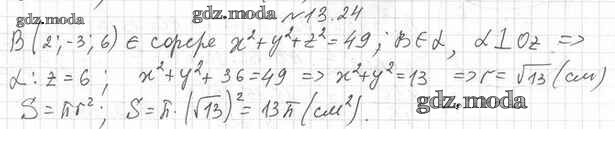 gdz.moda gdz.moda №13.24
B(2;-3;6) ∈ сфере x²+y²+z²=49; B∈α, α⊥Oz =>
α: z=6; x²+y²+36=49 => x²+y²=13 => r=√13 (см)
S=πr²; S=π·(√13)²=13π(см²). gdz.moda